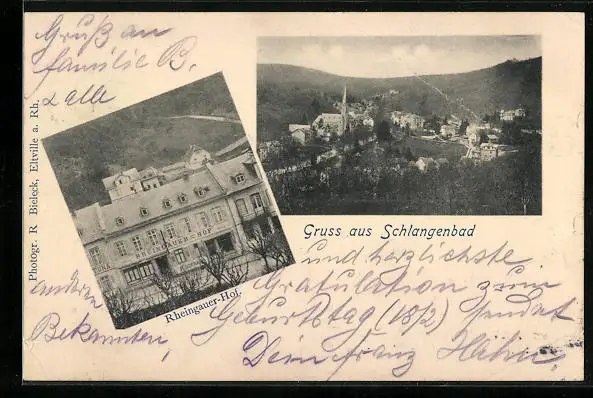 Gruß an
familie B.
alle
Photogr. R Bieleck, Eltville a. Rh.
RHEINGAUER-HOF
Rheingauer-Hof.
anderen
Bekannten,
Gruss aus Schlangenbad
und herzlichste
Gratulation zum
Geburtstag (18/2) sendet
Dein franz Hahn